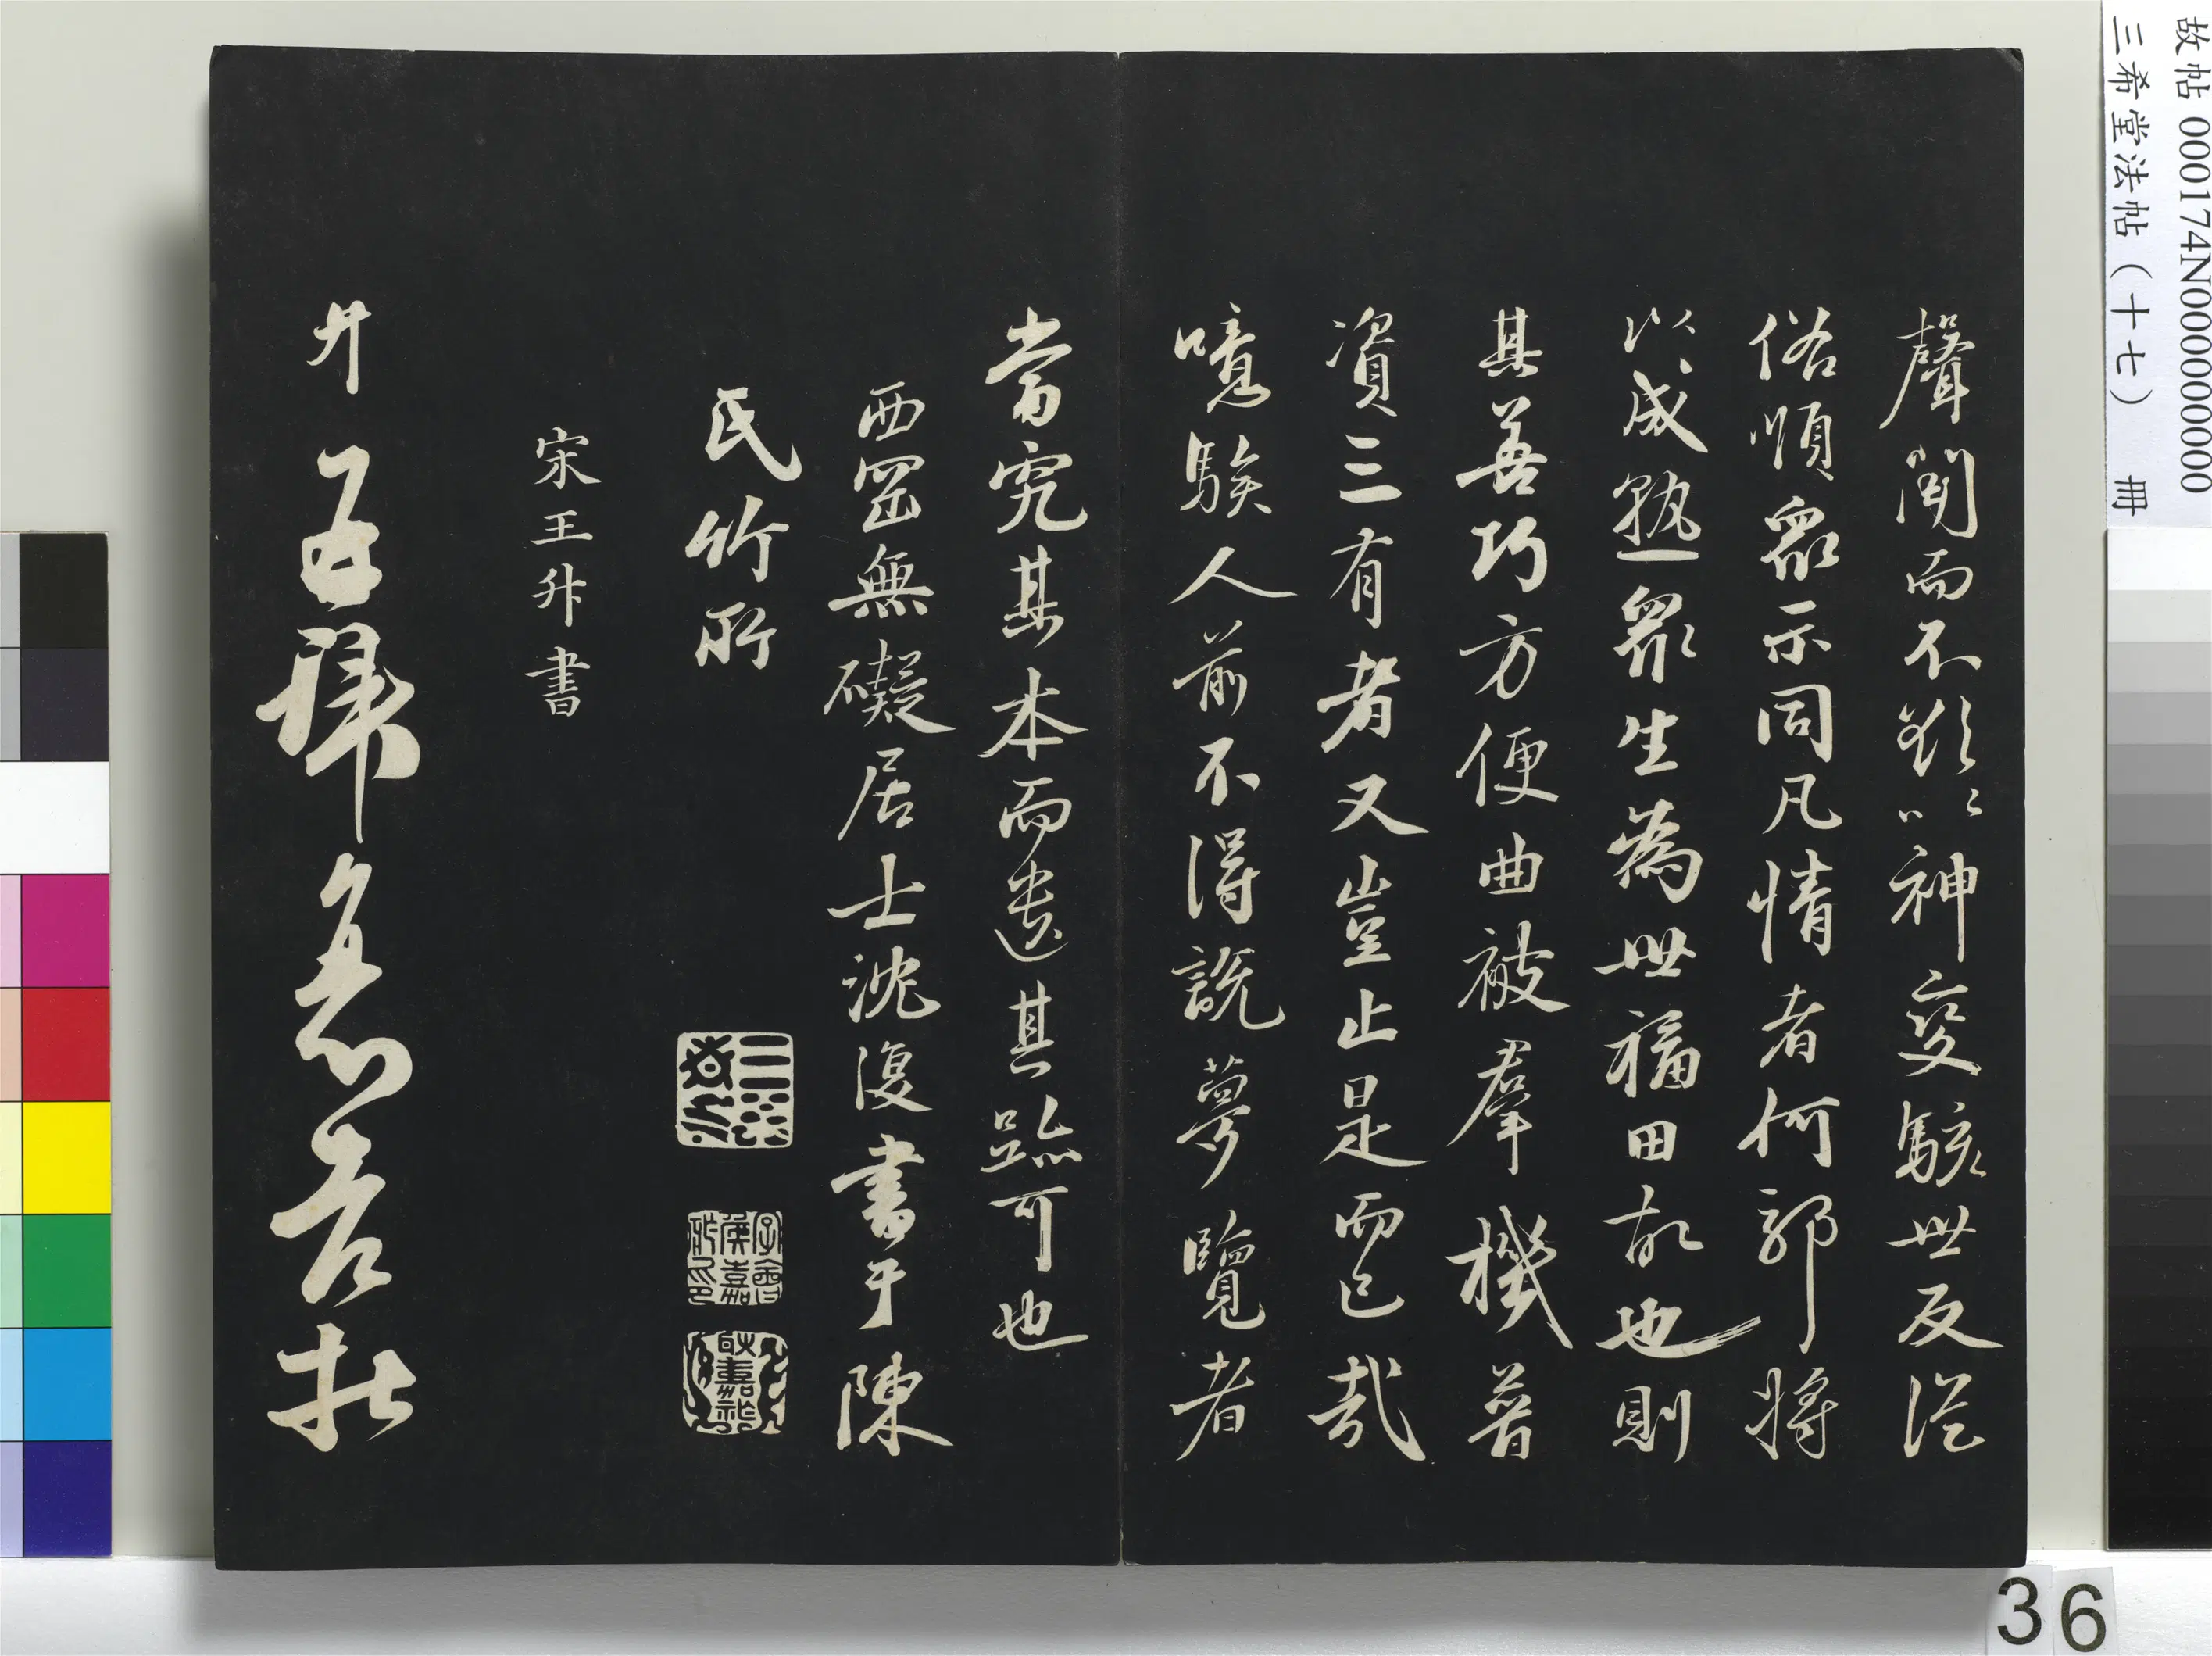 故帖 000174N000000000
三希堂法帖（十七） 冊
聲聞而不歘〻神變駭世反從
俗順衆示同凡情者何郭將
以成熟衆生為世福田故也則
其善巧方便曲被羣機普
資三有者又豈止是而已哉
噫騃人前不得説夢覽者
當究其本而遺其跡可也
西罡無礙居士沈復書于陳
氏竹所
宋王升書
36